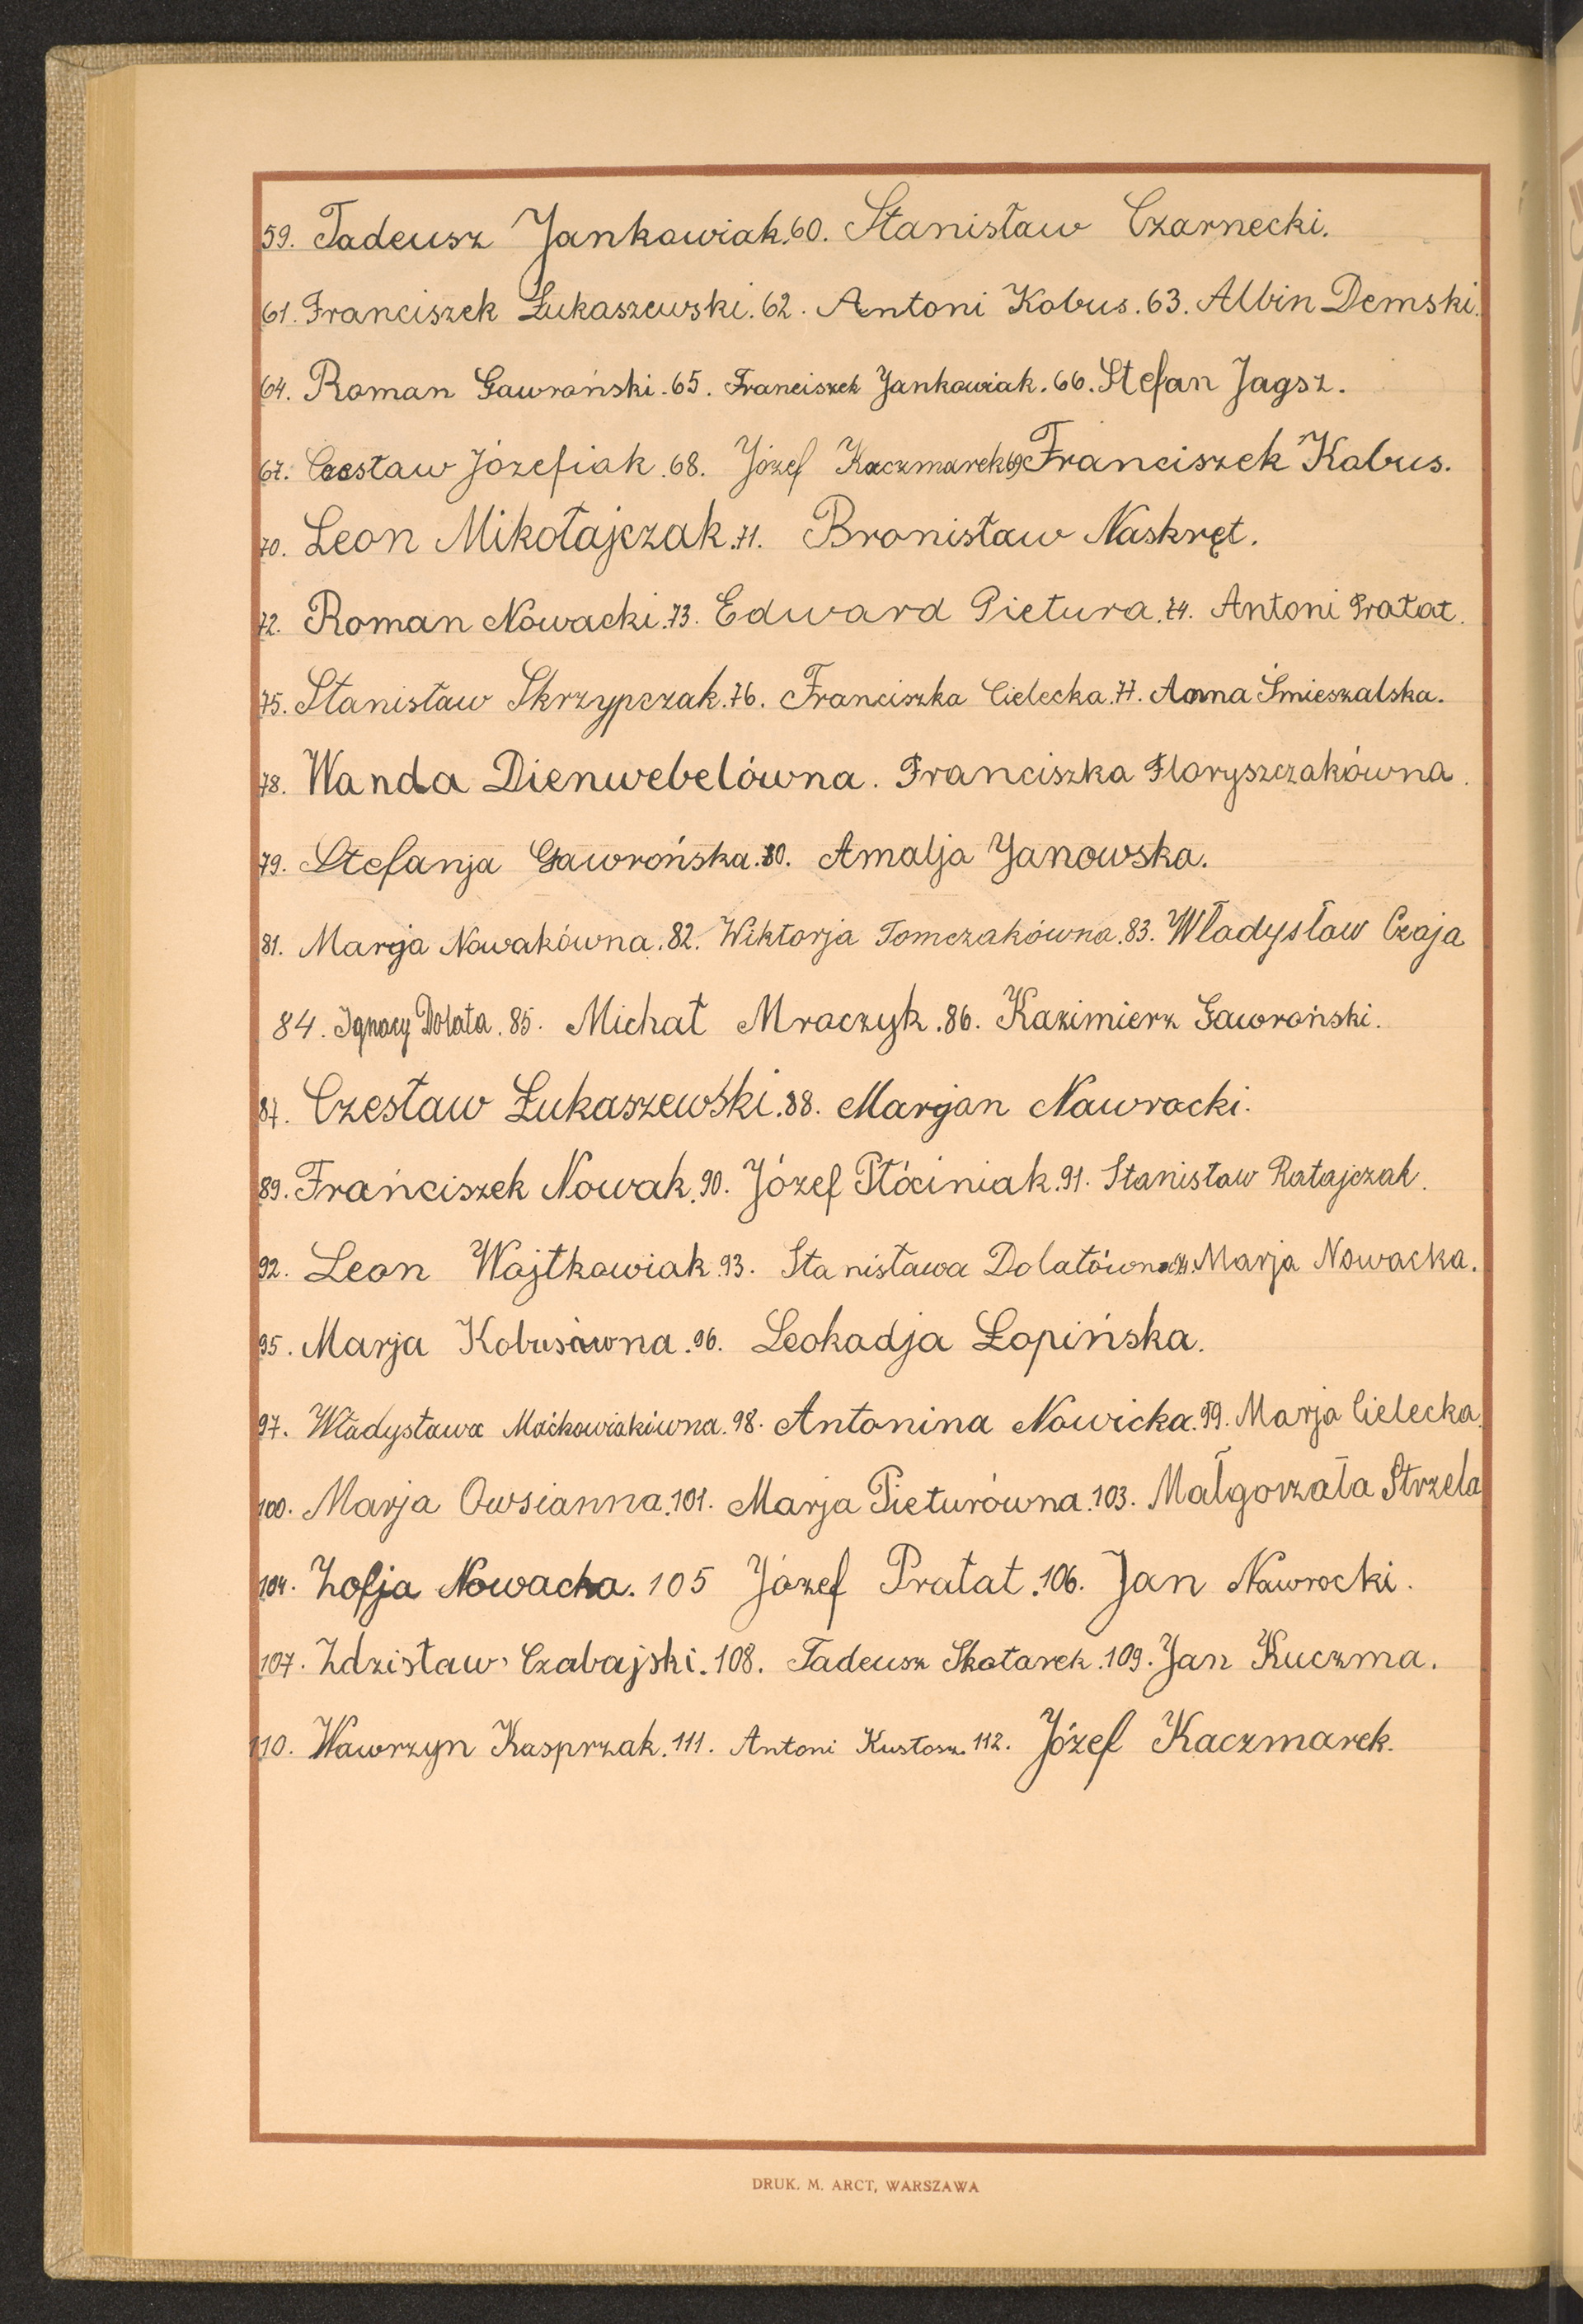 59. Tadeusz Jankowiak. 60. Stanisław Czarnecki.
61. Franciszek Łukaszewski. 62. Antoni Kobus. 63. Albin Demski.
64. Roman Gawroński. 65. Franciszek Jankowiak. 66. Stefan Jagsz.
67. Czesław Józefiak. 68. Józef Kaczmarek 69 Franciszek Kobus.
70. Leon Mikołajczak. 71. Bronisław Naskręt.
72. Roman Nowacki. 73. Edward Pietura. 74. Antoni Prałat.
75. Stanisław Skrzypczak. 76. Franciszka Cielecka. 77. Anna Śmieszalska.
78. Wanda Dienwebelówna. Franciszka Floryszczakówna.
79. Stefanja Gawrońska. 80. Amalja Janowska.
81. Marja Nowakówna. 82. Wiktorja Tomczakówna. 83. Władysław Czaja
84. Ignacy Dolata. 85. Michał Mraczyk. 86. Kazimierz Gawroński.
87. Czesław Łukaszewski. 88. Marjan Nawrocki.
89. Frańciszek Nowak. 90. Józef Płóciniak. 91. Stanisław Ratajczak.
92. Leon Wojtkowiak. 93. Stanisława Dolatówna 94. Marja Nowacka.
95. Marja Kobusówna. 96. Leokadja Łopińska.
97. Władysława Maćkowiakówna. 98. Antonina Nowicka. 99. Marja Cielecka.
100. Marja Owsianna. 101. Marja Pieturówna. 103. Małgorzata Strzela
104. Zofja Nowacka. 105 Józef Prałat. 106. Jan Nawrocki.
107. Zdzisław Czabajski. 108. Tadeusz Skotarek. 109. Jan Kuczma.
110. Wawrzyn Kasprzak. 111. Antoni Kustosz. 112. Józef Kaczmarek.
DRUK. M. ARCT, WARSZAWA